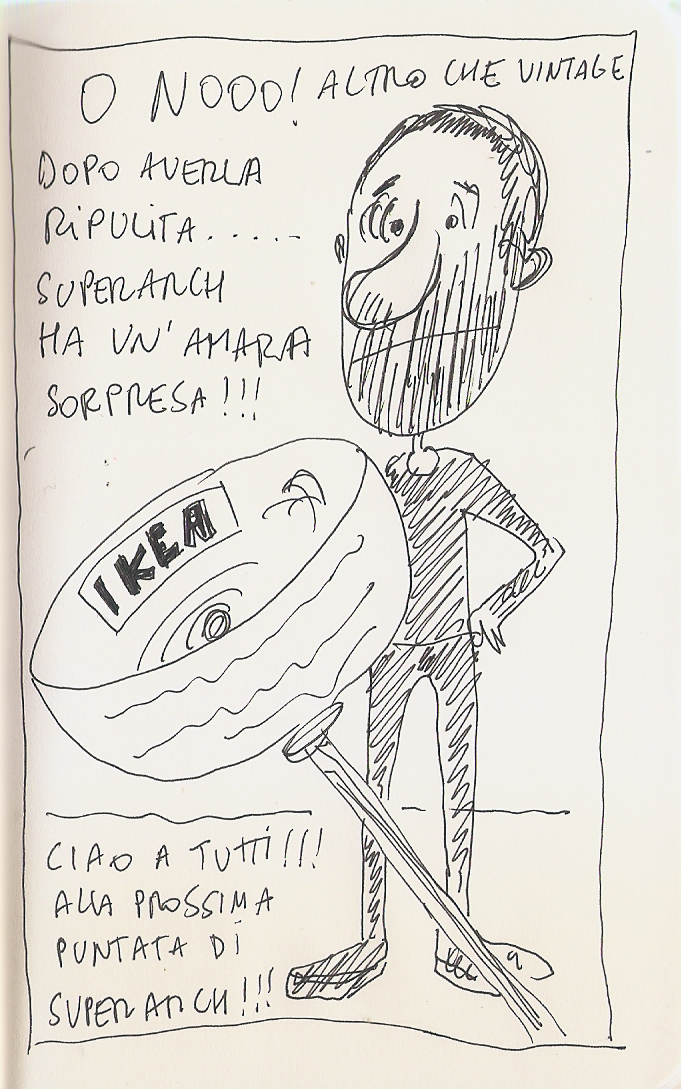 O NOOO! ALTRO CHE VINTAGE
DOPO AVERLA
RIPULITA.....
SUPERARCH
HA UN'AMARA
SORPRESA!!!
IKEA
CIAO A TUTTI!!!
ALLA PROSSIMA
PUNTATA DI
SUPERARCH!!!